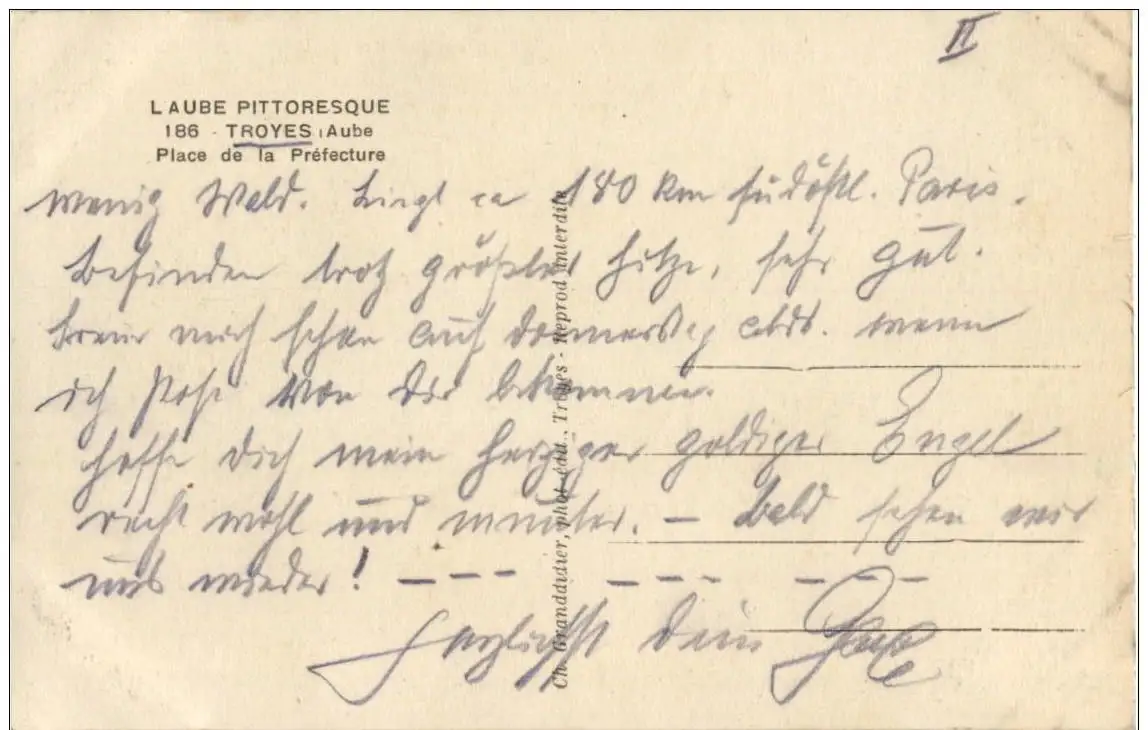 II
L'AUBE PITTORESQUE
186 - TROYES (Aube
Place de la Préfecture
wenig Wald. Liegt ca 180 km südöstl. Paris.
Befinden trotz größter Hitze, sehr gut.
Freue mich schon auf Donnerstag abds. wenn
ich Post von Dir bekomme.
hoffe Dich mein herziger goldiger Engel
recht wohl und munter. – Bald sehen wir
uns wieder! – – – – – – – – –
Herzlichst Dein
Ch. Granddidier, phot-édit., Troyes - Reprod. interdite